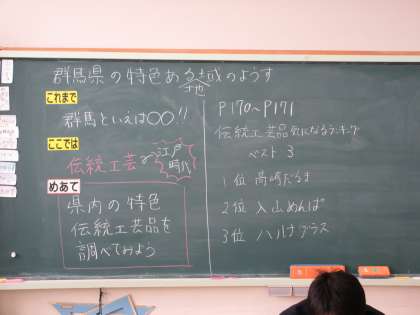 群馬県の特色ある地域のようす
これまで
群馬といえば〇〇!!
ここでは
伝統工芸で江戸時代
めあて
県内の特色
伝統工芸品を
調べてみよう
P170~P171
伝統工芸品気になるランキング
ベスト3
1位 高崎だるま
2位 入山めんぱ
3位 ハルナグラス